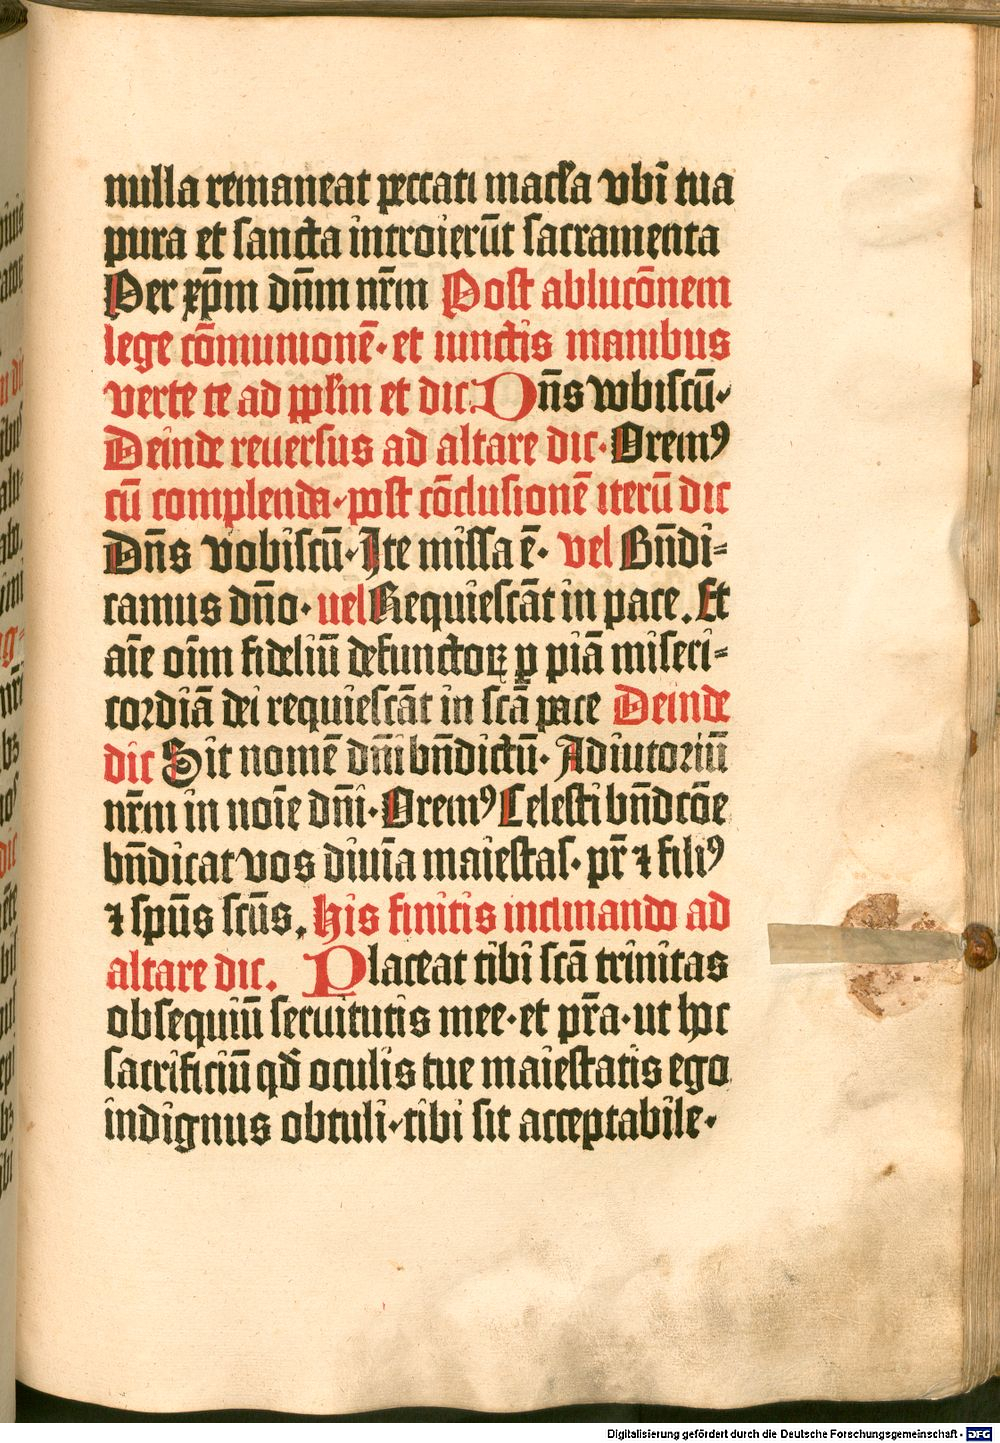 nulla remaneat peccati macula vbi tua
pura et sancta introierūt sacramenta
Per xp̄m dn̄m nr̄m Post abluc̄onem
lege cōmunionē· et iunctis manibus
verte te ad ppl̄m et dic. Dn̄s vobiscū·
Deinde reuersus ad altare dic· Oremꝰ
cū complenda· post cōclusionē iterū dic
Dn̄s vobiscū· Ite missa ē· vel Bn̄di⸗
camus dn̄o· uel Requiescāt in pace. Et
aīe oīm fideliū defunctoꝝ ꝑ piā miseri⸗
cordiā dei requiescāt in scā pace Deinde
dic Sit nomē dn̄i bn̄dictū· Adiutoriū
nr̄m in noīe dn̄i· Oremꝰ Celesti bn̄dc̄oe
bn̄dicat vos diuīa maiestas· pr̄ ⁊ filiꝰ
⁊ spūs scūs. His finitis inclinando ad
altare dic. Placeat tibi scā trinitas
obsequiū seruitutis mee· et pr̄a· ut hoc
sacrificiū qd̄ oculis tue maiestatis ego
indignus obtuli· tibi sit acceptabile·
Digitalisierung gefördert durch die Deutsche Forschungsgemeinschaft - DFG